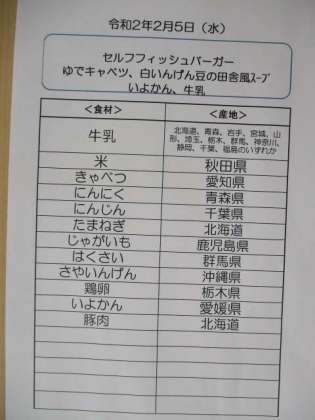 令和2年2月5日（水）
セルフフィッシュバーガー
ゆでキャベツ、白いんげん豆の田舎風ｽｰﾌﾟ
いよかん、牛乳
＜食材＞ ＜産地＞
牛乳 北海道、青森、岩手、宮城、山形、埼玉、栃木、群馬、神奈川、静岡、千葉、福島のいずれか
米 秋田県
きゃべつ 愛知県
にんにく 青森県
にんじん 千葉県
たまねぎ 北海道
じゃがいも 鹿児島県
はくさい 群馬県
さやいんげん 沖縄県
鶏卵 栃木県
いよかん 愛媛県
豚肉 北海道